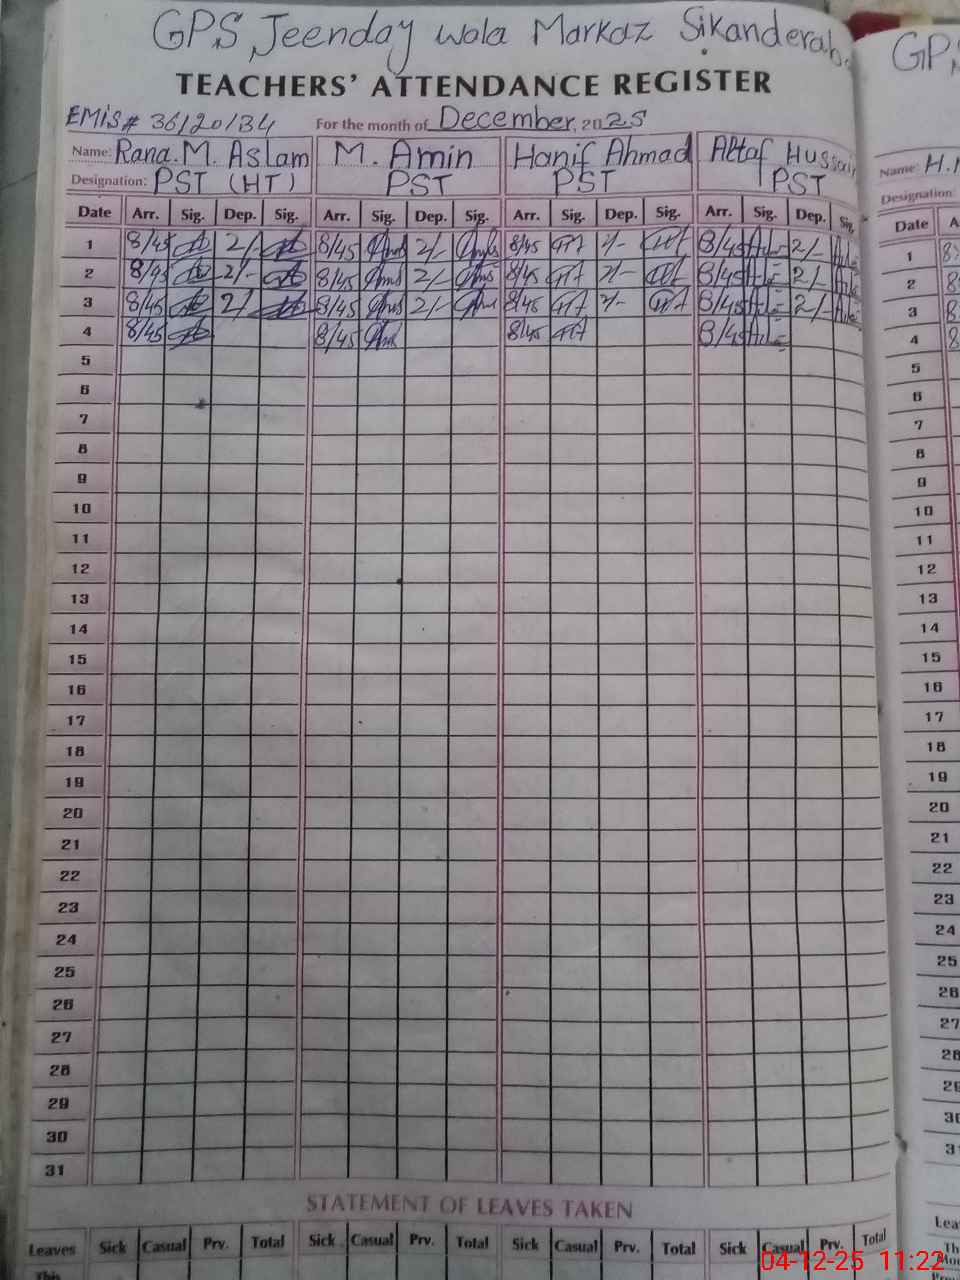 GPS Jeenday wola Markaz Sikanderab
TEACHERS' ATTENDANCE REGISTER
EMIS# 36120134 For the month of December, 2025
Name: Rana.M. Aslam M. Amin Hanif Ahmad Altaf Hussain
Designation: PST (HT) PST PST PST
Date Arr. Sig. Dep. Sig. Arr. Sig. Dep. Sig. Arr. Sig. Dep. Sig. Arr. Sig. Dep. Sig.
1 8/45 2/- 8/45 2/- 8/45 2/- 8/45 2/-
2 8/45 2/- 8/45 2/- 8/45 2/- 8/45 2/-
3 8/45 2/- 8/45 2/- 8/45 2/- 8/45 2/-
4 8/45 8/45 8/45 8/45
5
6
7
8
9
10
11
12
13
14
15
16
17
18
19
20
21
22
23
24
25
26
27
28
29
30
31
STATEMENT OF LEAVES TAKEN
Leaves Sick Casual Prv. Total Sick Casual Prv. Total Sick Casual Prv. Total Sick Casual Prv. Total
This
GPS
Name: H.
Designation:
Date A
1
2
3
4
5
6
7
8
9
10
11
12
13
14
15
16
17
18
19
20
21
22
23
24
25
26
27
28
29
30
31
Lea
Th
Mo
04-12-25 11:22